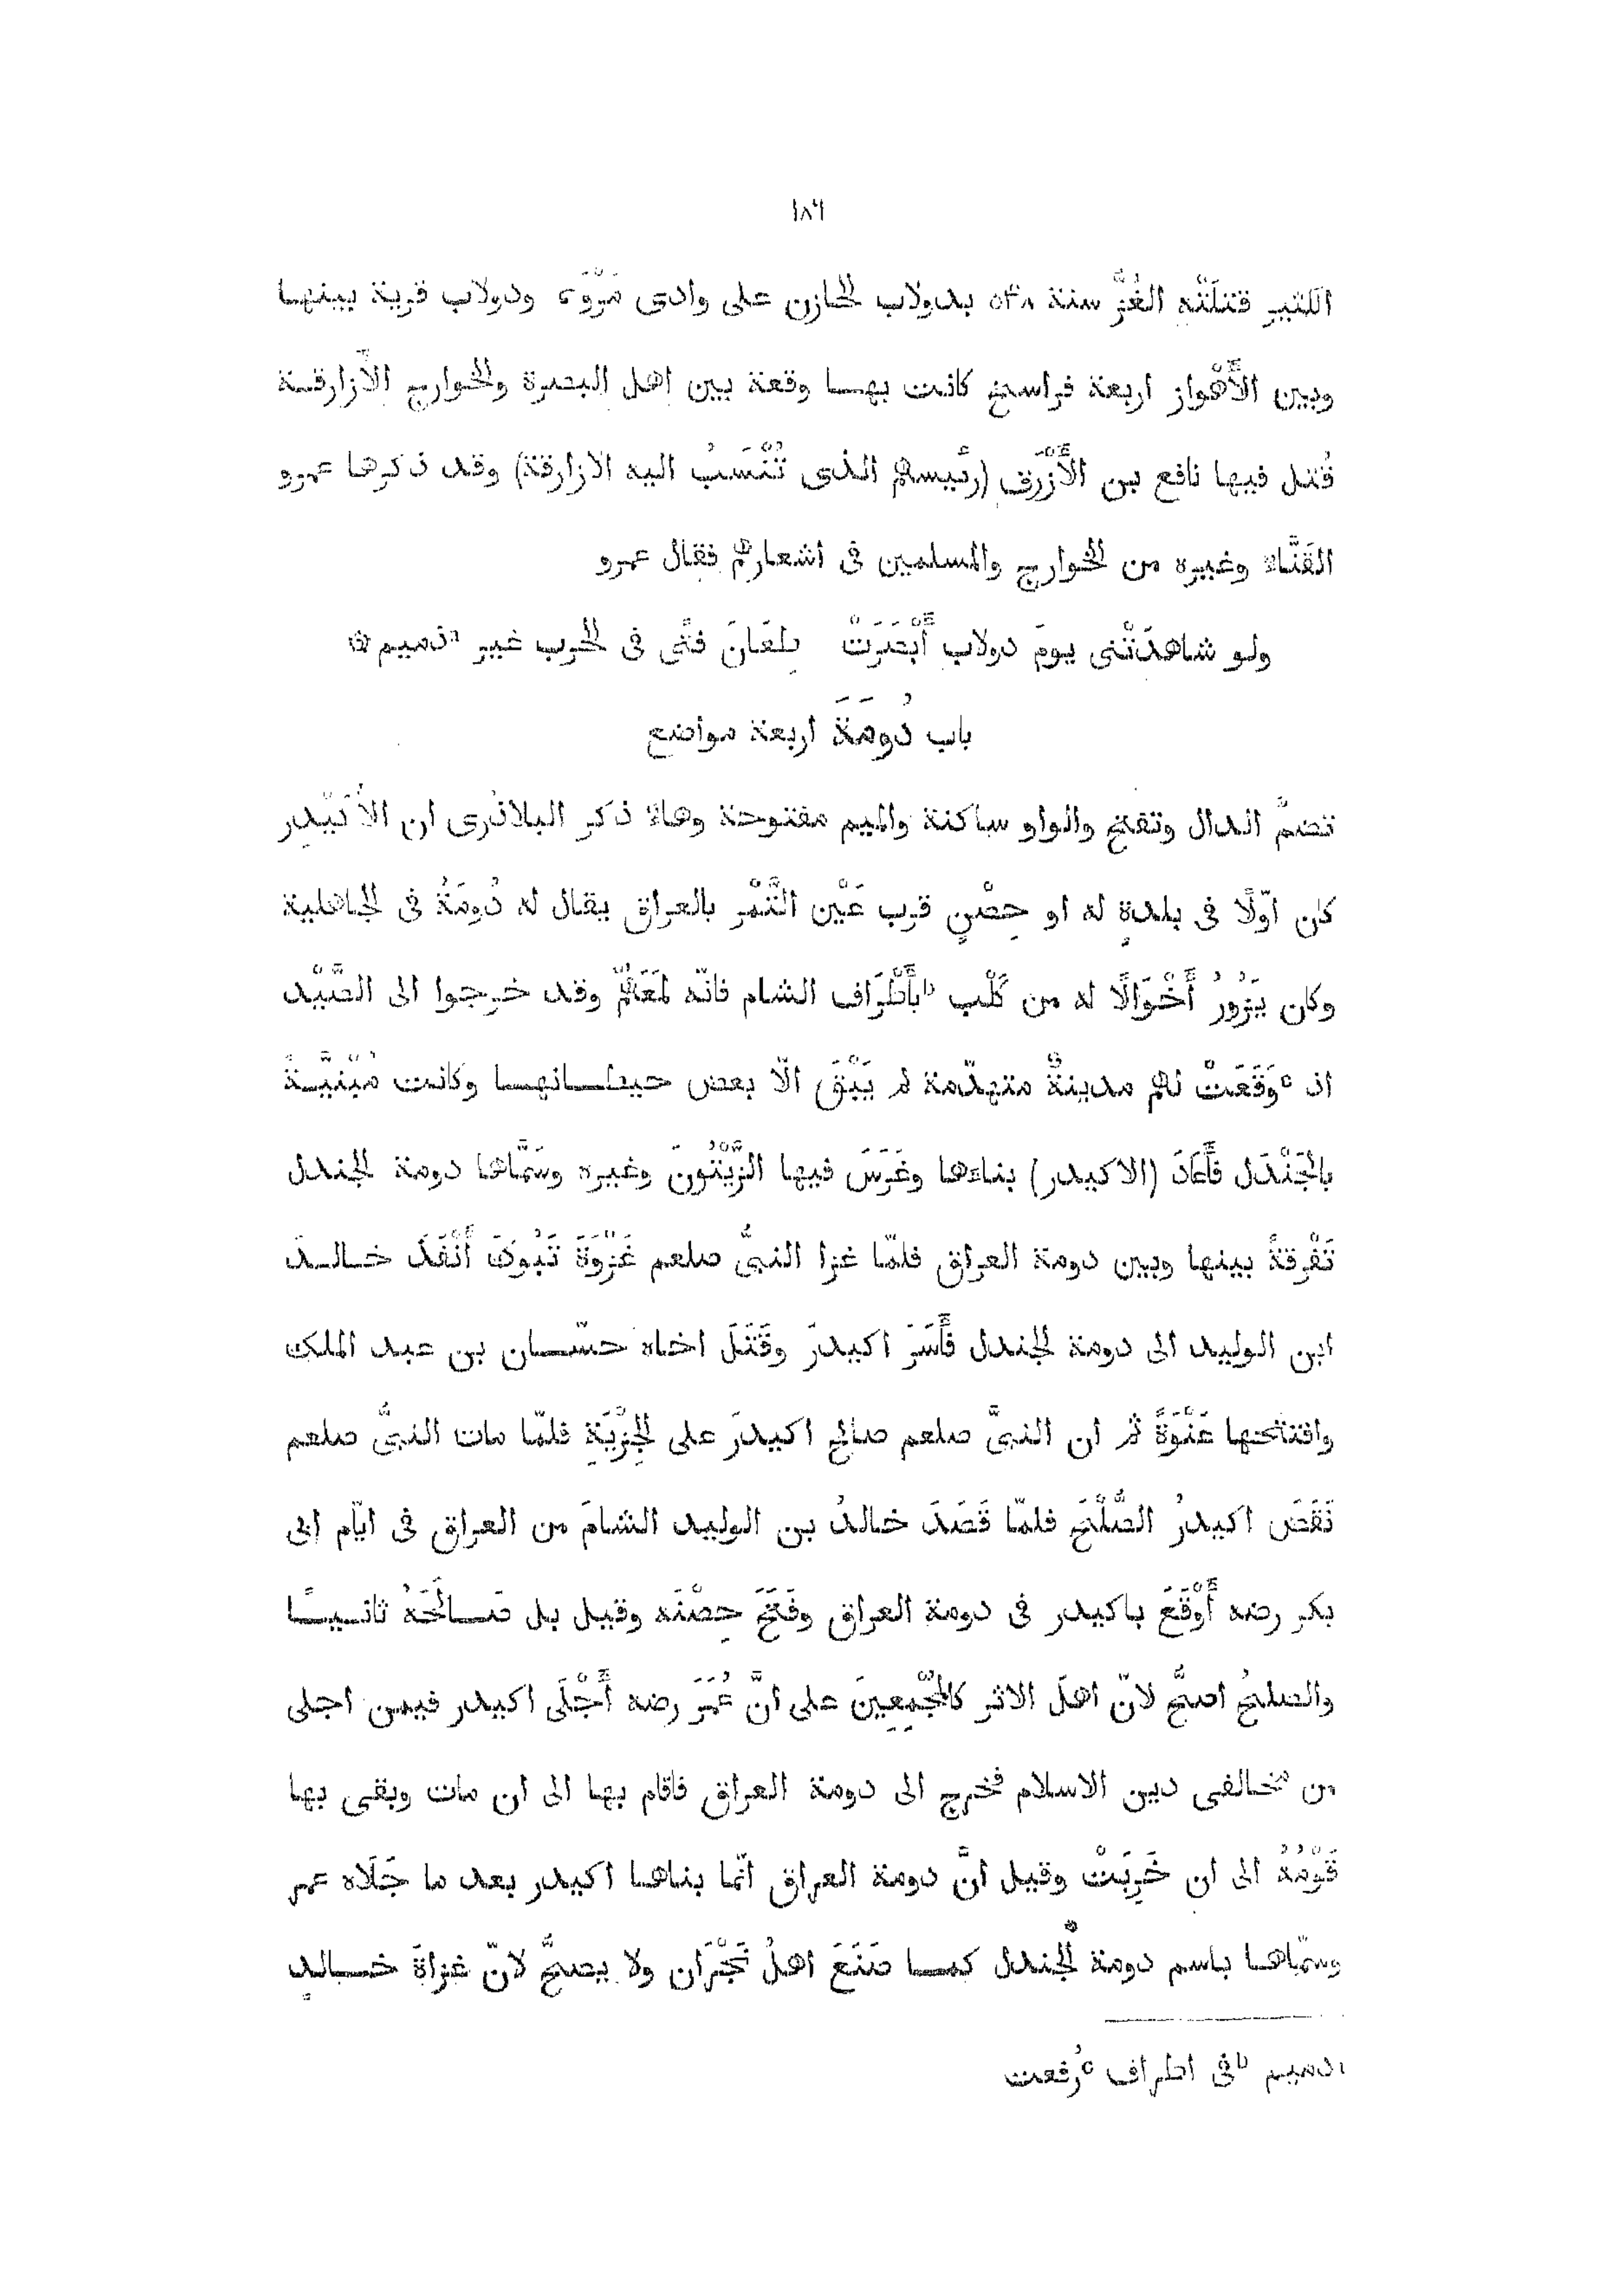 ١٨٦
الكثير قتلَتْه الغُزُّ سنة ٥٤٨ بدولاب الخازن على وادى مَرْوَ ٥ ودولاب قرية بينها
وبين الأَهْواز اربعة فراسخ كانت بها وقعة بين اهل البصرة والخوارج الأزارقة
قُتل فيها نافع بن الأَزْرَق (رئيسهم الذى تُنْسَبُ اليه الازارقة) وقد ذكرها عمرو
القَنَّاء وغيره من الخوارج والمسلمين فى اشعارهم فقال عمرو
ولو شاهدَتْنى يومَ دولاب أَبْصَرَتْ طِعَانَ فتًى فى الحرب غير a ذميم ۞
باب دُومَةَ اربعة مواضع
تضمُّ الدال وتفتح والواو ساكنة والميم مفتوحة وهاءٌ ذكر البلاذرى ان الأُكَيْدِر
كان اوّلًا فى بلدةٍ له او حِصْنٍ قرب عَيْن التَّمْر بالعراق يقال له دُومَةُ فى الجاهلية
وكان يَزُورُ أَخْوَالًا له من كَلْب b بأَطْرَاف الشام فانّه لمَعَهُمْ وقد خرجوا الى الصَّيْد
اذ c وَقَعَتْ لهم مدينةٌ متهدّمة لم يَبْقَ الّا بعض حيطانها وكانت مَبْنِيَّةً
بالجَنْدَل فأَعَادَ (الاكيدر) بناءها وغَرَسَ فيها الزَّيْتُونَ وغيره وسَمَّاها دومة الجندل
تَفْرِقةً بينها وبين دومة العراق فلمّا غزا النبىُّ صلعم غَزْوَةَ تَبُوكَ أَنْفَذَ خالدَ
ابن الوليد الى دومة الجندل فأَسَرَ اكيدرَ وقَتَلَ اخاه حسّان بن عبد الملك
وافتتحها عَنْوَةً ثم ان النبىَّ صلعم صالح اكيدرَ على الجِزْيَةِ فلمّا مات النبىُّ صلعم
نَقَضَ اكيدرُ الصُّلْحَ فلمّا قَصَدَ خالدُ بن الوليد الشامَ من العراق فى ايّام ابى
بكر رضه أَوْقَعَ باكيدر فى دومة العراق وفَتَحَ حِصْنَه وقيل بل صَالَحَهُ ثانيًا
والصلحُ اصحُّ لانّ اهلَ الاثر كالمُجْمِعِينَ على انَّ عُمَرَ رضه أَجْلَى اكيدر فيمن اجلى
من مخالفى دين الاسلام فخرج الى دومة العراق فاقام بها الى ان مات وبقى بها
قَوْمُهُ الى ان خَرِبَتْ وقيل انَّ دومة العراق انّما بناها اكيدر بعد ما جَلَاه عمر
وسمّاها باسم دومة الجندل كما صَنَعَ اهلُ نَجْرَان ولا يصحُّ لانّ غزاةَ خالدٍ
دميم b فى اطراف c رُفعت